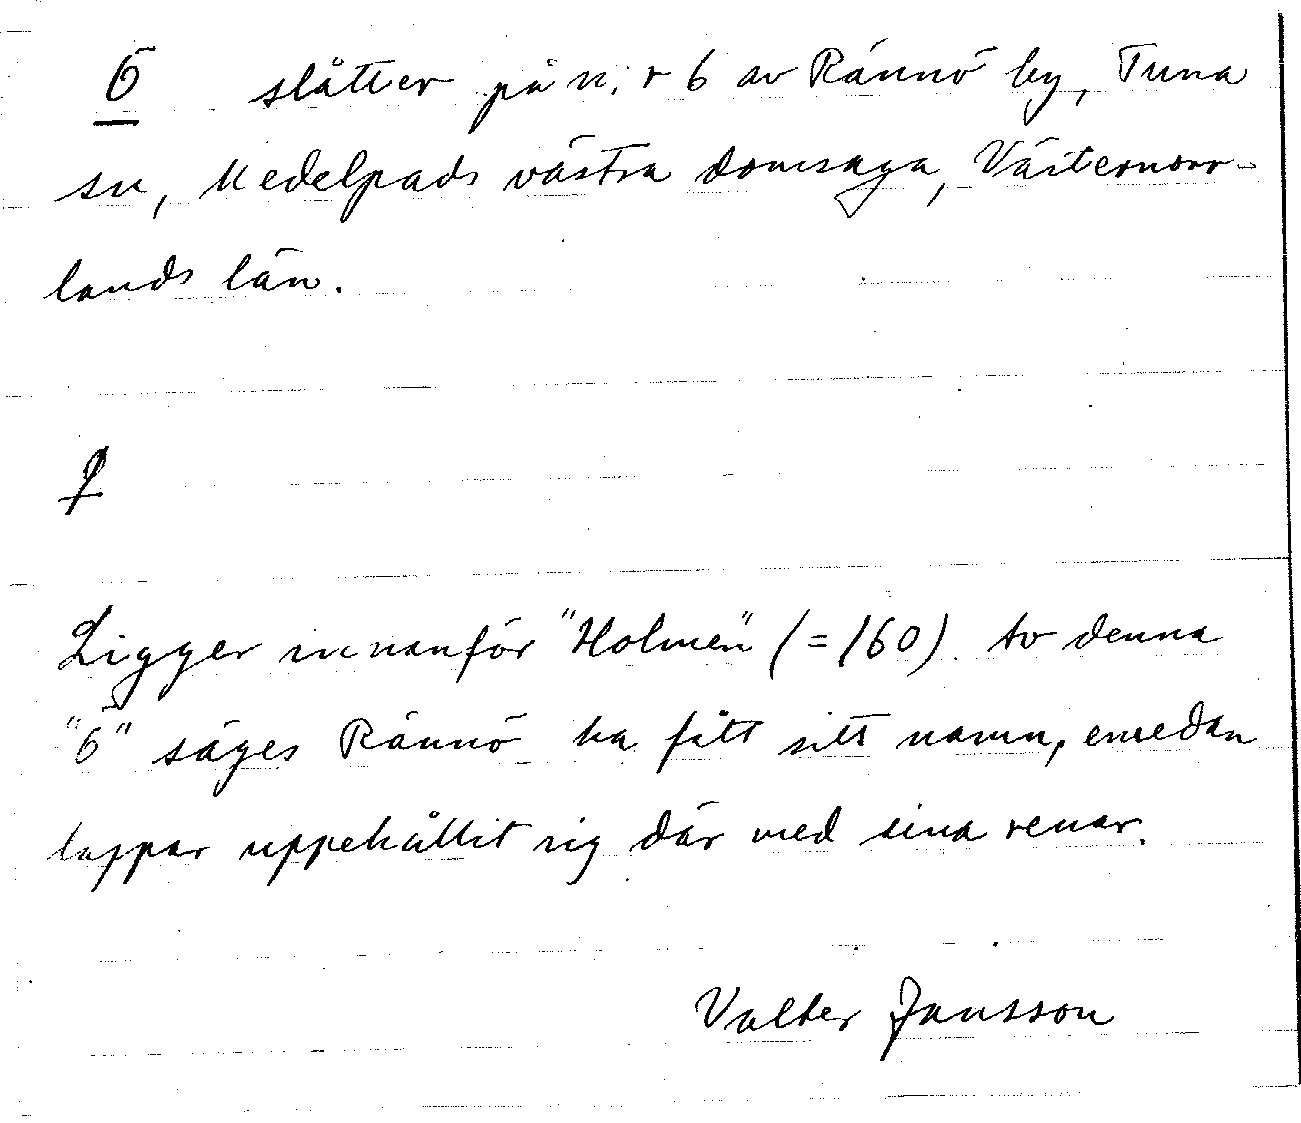 Ö slåtter på n:r 6 av Rännö by, Tuna
sn, Medelpads västra domsaga, Västernorr-
lands län.
Ligger innanför "Holmen" (=160). Av denna
"ö" säges Rännö ha fått sitt namn, emedan
lappar uppehållit sig där med sina renar.
Valter Jansson